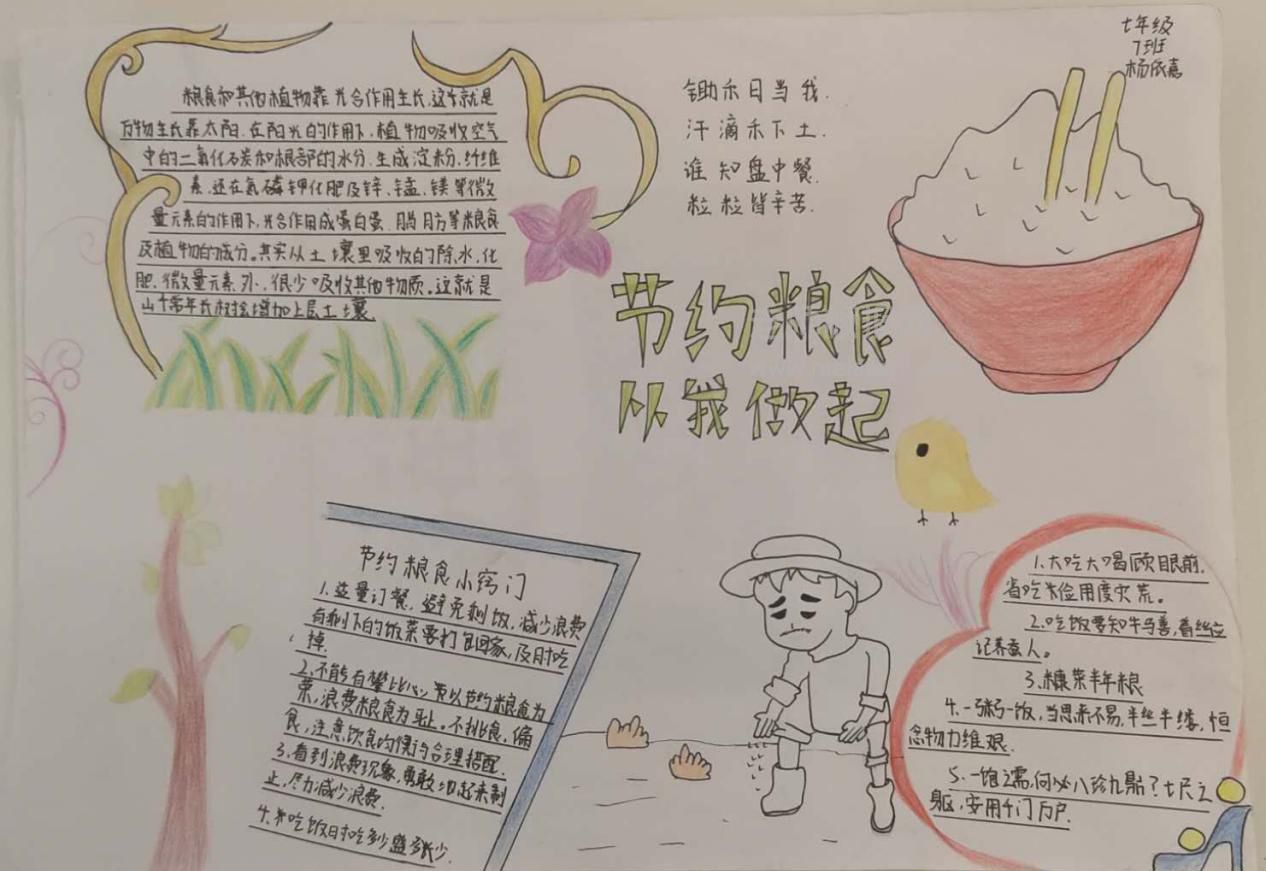 七年级
7班
杨依嘉
粮食和其他植物靠光合作用生长,这才就是
万物生长靠太阳.在阳光的作用下,植物吸收空气
中的二氧化碳和根部的水分.生成淀粉,纤维
素,还在氮磷钾化肥及锌、锰、镁等微
量元素的作用下,光合作用成蛋白蛋、脂肪等粮食
及植物的成分。其实从土壤里吸收的除,水,化
肥,微量元素外,很少吸收其他物质。这就是
山常年长树捨增加上层土壤
锄禾日当我.
汗滴禾下土.
谁知盘中餐.
粒粒皆辛苦.
节约粮食
从我做起
节约粮食小窍门
1.适量订餐,避免剩饭,减少浪费
有剩下的饭菜要打包回家,及时吃
掉.
2.不能有攀比心以节约粮食为
荣,浪费粮食为耻。不挑食,偏
食,注意饮食均衡合理搭配.
3.看到浪费现象,勇敢起来制
止,尽力减少浪费.
4.吃饭时吃多少盛多少.
1.大吃大喝顾眼前.
省吃俭用度灾荒。
2.吃饭要知牛马善,着丝应
记养蚕人。
3.糠菜半年粮
4.一粥一饭,当思来不易,半丝半缕,恒
念物力维艰.
5.一饱之需,何必八珍九鼎?七尺之
躯,安用千门万户.